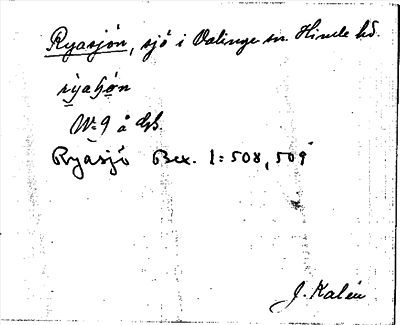 Ryasjön, sjö i Valinge sn. Himle hd.
rỳaʃön
N:9 å dsb.
Ryasjö Bex. 1:508, 509
J. Kalén